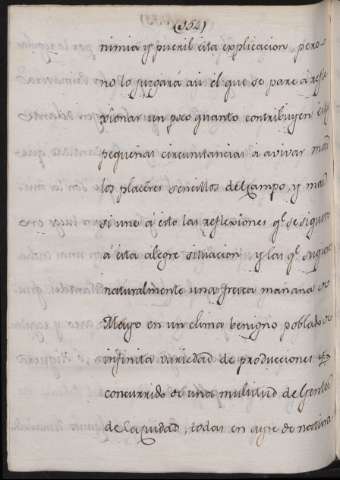 (352)
nimia y pueril esta explicacion, pero
no lo juzgará asi el que se pare á refle
xionar un poco quanto contribuyen estas
pequeñas circunstancias á avivar mas
los placeres sencillos del Campo, y mas
si une á esto las reflexiones q.e se siguen
á esta alegre situacion y las q.e sugiere
naturalmente una fresca mañana de
Mayo en un clima benigno poblado de
infinita variedad de producciones y
concurrido de una multitud de Gentes
de la ciudad, todas en ayre de